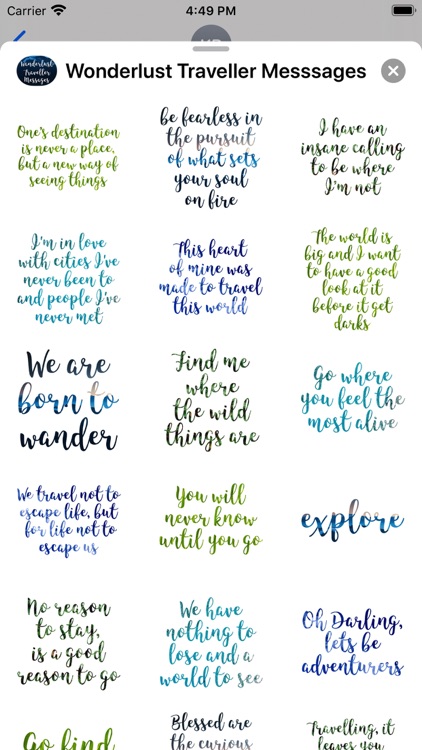 Carrier 4:49 PM
Wonderlust
Traveller
Messages
Wonderlust Traveller Messsages
One's destination
is never a place,
but a new way of
seeing things
be fearless in
the pursuit
of what sets
your soul
on fire
I have an
insane calling
to be where
I'm not
I'm in love
with cities I've
never been to
and people I've
never met
This heart
of mine was
made to travel
this world
The world is
big and I want
to have a good
look at it
before it get
darks
We are
born to
wander
Find me
where
the wild
things are
Go where
you feel the
most alive
We travel not to
escape life, but
for life not to
escape us
You will
never know
until you go
explore
No reason
to stay,
is a good
reason to go
We have
nothing to
lose and a
world to see
Oh Darling,
lets be
adventurers
Go find
Blessed are
the curious
Travelling, it
leaves you